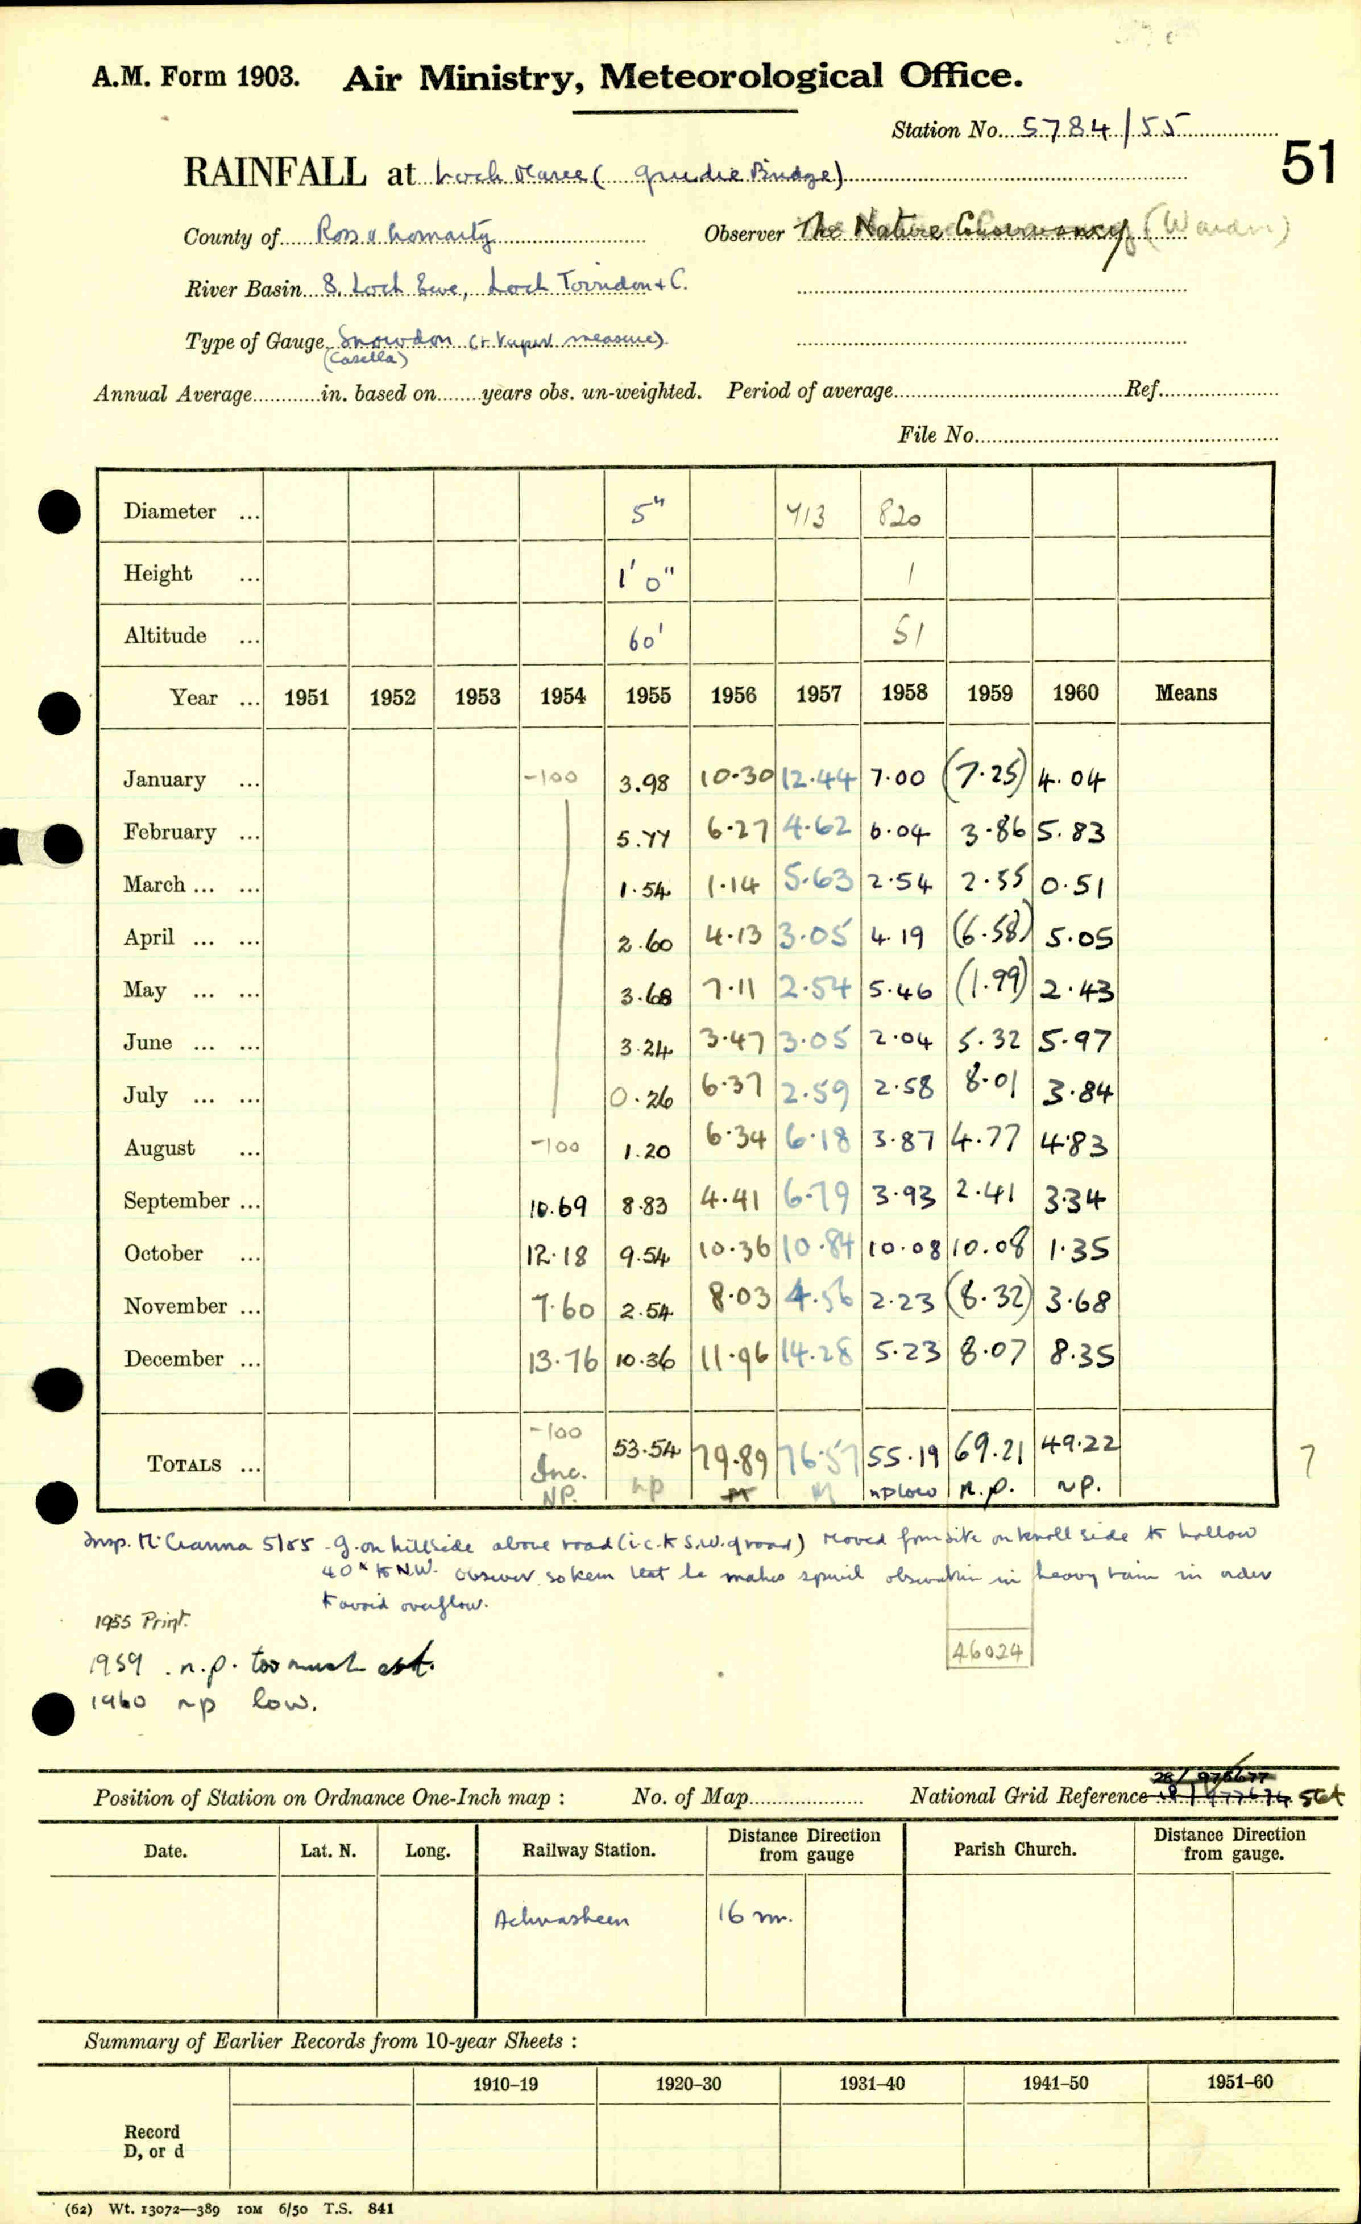 A.M. Form 1903. Air Ministry, Meteorological Office.
Station No. 5784/55
51
RAINFALL at Loch Maree ( Grudie Bridge)
County of Ross & Cromarty Observer The Nature Conservancy (Warden)
River Basin 8. Loch Ewe, Loch Torridon & C.
Type of Gauge Snowdon (+ taper measure)
(Casella)
Annual Average in. based on years obs. un-weighted. Period of average Ref.
File No.
Diameter ... 5" 713 820
Height ... 1' 0" 1
Altitude ... 60' 51
Year ... 1951 1952 1953 1954 1955 1956 1957 1958 1959 1960 Means
January ... -100 3.98 10.30 12.44 7.00 (7.25) 4.04
February ... 5.77 6.27 4.62 6.04 3.86 5.83
March ... ... 1.54 1.14 5.63 2.54 2.55 0.51
April ... ... 2.60 4.13 3.05 4.19 (6.58) 5.05
May ... ... 3.68 7.11 2.54 5.46 (1.99) 2.43
June ... ... 3.24 3.47 3.05 2.04 5.32 5.97
July ... ... 0.26 6.37 2.59 2.58 8.01 3.84
August ... -100 1.20 6.34 6.18 3.87 4.77 4.83
September ... 10.69 8.83 4.41 6.79 3.93 2.41 3.34
October ... 12.18 9.54 10.36 10.84 10.08 10.08 1.35
November ... 7.60 2.54 8.03 4.56 2.23 (8.32) 3.68
December ... 13.76 10.36 11.96 14.28 5.23 8.07 8.35
-100
TOTALS ... Inc. 53.54 79.89 76.57 55.19 69.21 49.22 7
NP. np M np low n.p. NP.
Insp. 5/55 - g. on hillside above road (i.e. to S.W. of road) Moved from site on knoll side to hollow
40 to N.W. Observer so keen that he makes special observation in heavy rain in order
to avoid overflow.
1955 Print.
1959 . n.p. too much est.
46024
1960 np low.
Position of Station on Ordnance One-Inch map : No. of Map National Grid Reference
Date. Lat. N. Long. Railway Station. Distance from gauge Direction Parish Church. Distance from gauge. Direction
Achnasheen 16 m.
Summary of Earlier Records from 10-year Sheets :
1910-19 1920-30 1931-40 1941-50 1951-60
Record
D, or d
(62) Wt. 13072—389 10M 6/50 T.S. 841